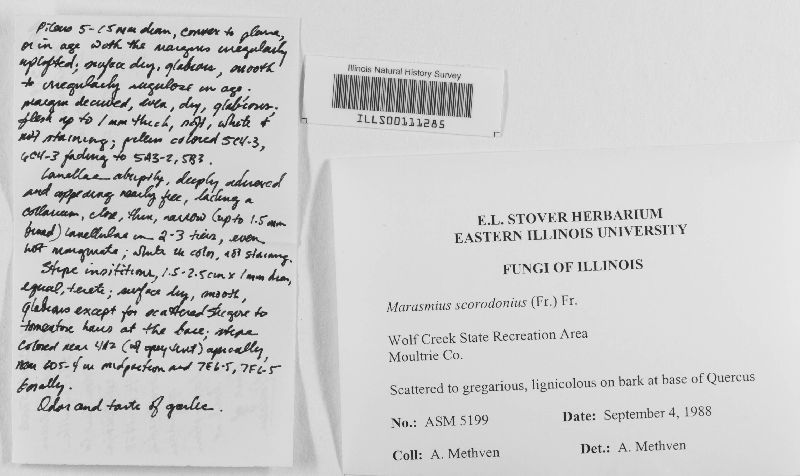 Pileus 5-15 mm diam, convex to plane,
or in age with the margins irregularly
uplifted; surface dry, glabrous, smooth
to irregularly rugulose in age.
margin decurved, even, dry, glabrous;
flesh up to 1 mm thick, soft, white &
not staining; pileus colored 5C4-3,
6C4-3 fading to 5A3-2, 5B3.
Lamellae abruptly, deeply adnexed
and appearing nearly free, lacking a
collarium, close, thin, narrow (up to 1.5 mm
broad) lamellulae in 2-3 tiers, even,
not marginate; white in color, not staining.
Stipe insititious, 1.5-2.5 cm x 1 mm diam,
equal, terete; surface dry, smooth,
glabrous except for scattered strigose to
tomentose hairs at the base; stipe
colored near 4A2 (of) apically,
near 6D5-4 in midportion and 7E6-5, 7F6-5
basally.
Odor and taste of garlic.
Illinois Natural History Survey
ILLS00111285
E.L. STOVER HERBARIUM
EASTERN ILLINOIS UNIVERSITY
FUNGI OF ILLINOIS
Marasmius scorodonius (Fr.) Fr.
Wolf Creek State Recreation Area
Moultrie Co.
Scattered to gregarious, lignicolous on bark at base of Quercus
No.: ASM 5199 Date: September 4, 1988
Coll: A. Methven Det.: A. Methven